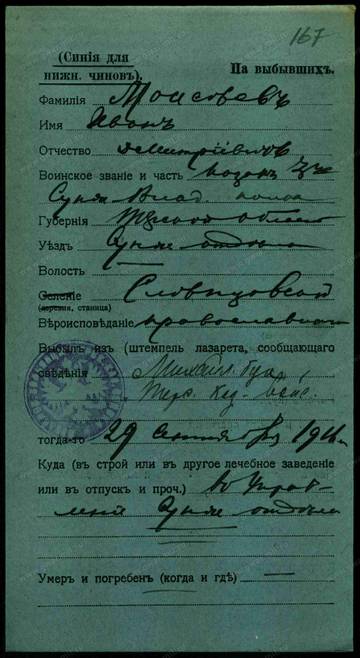 167
(Синія для нижн. чиновъ).
На выбывшихъ.
Фамилія Моисеевъ
Имя Иванъ
Отчество Дмитріевичъ
Воинское званіе и часть казакъ
Сунж. Влад. полка
Губернія Терской области
Уѣздъ Сунж. отдѣла
Волость —
Селеніе Слѣпцовской
(деревня, станица)
Вѣроисповѣданіе православнаго
Выбылъ изъ (штемпель лазарета, сообщающаго
свѣдѣнія
Терс. каз. войс.
тогда-то 29 сентября 191
Куда (въ строй или въ другое лечебное заведеніе
или въ отпускъ и проч.) въ Управ-
леніе Сунж. отдѣла
Умеръ и погребенъ (когда и гдѣ) —